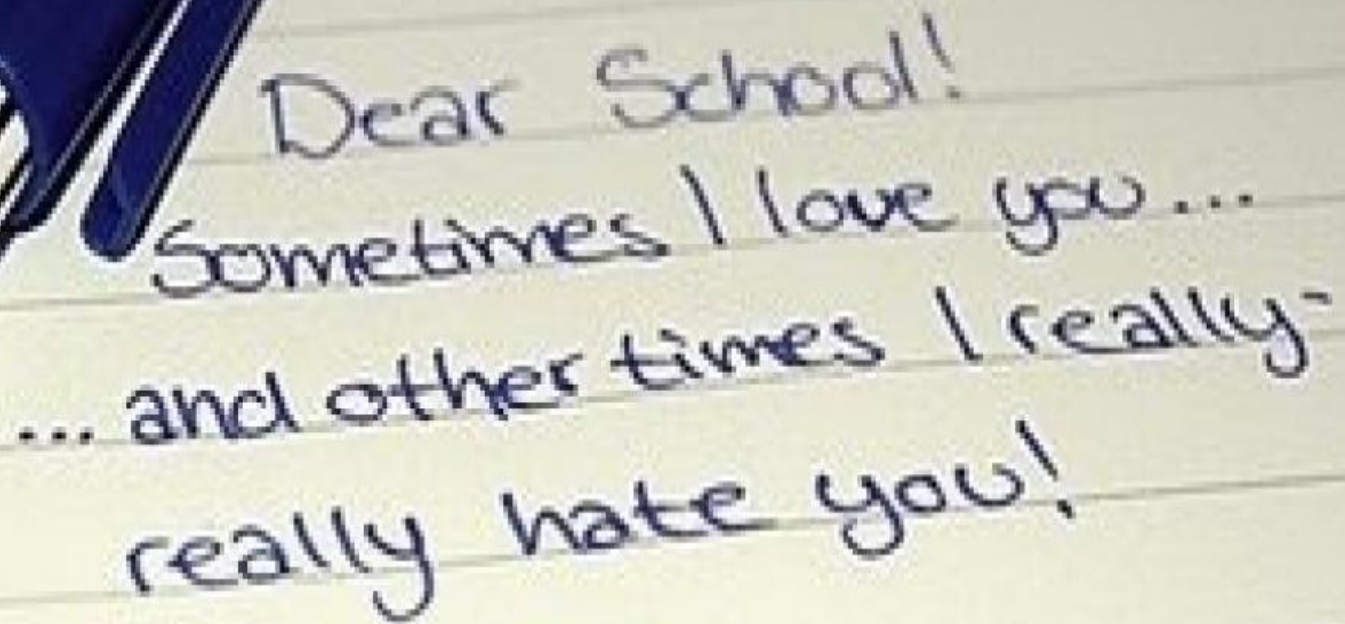 Dear School!
Sometimes I love you...
... and other times I really-
really hate you!